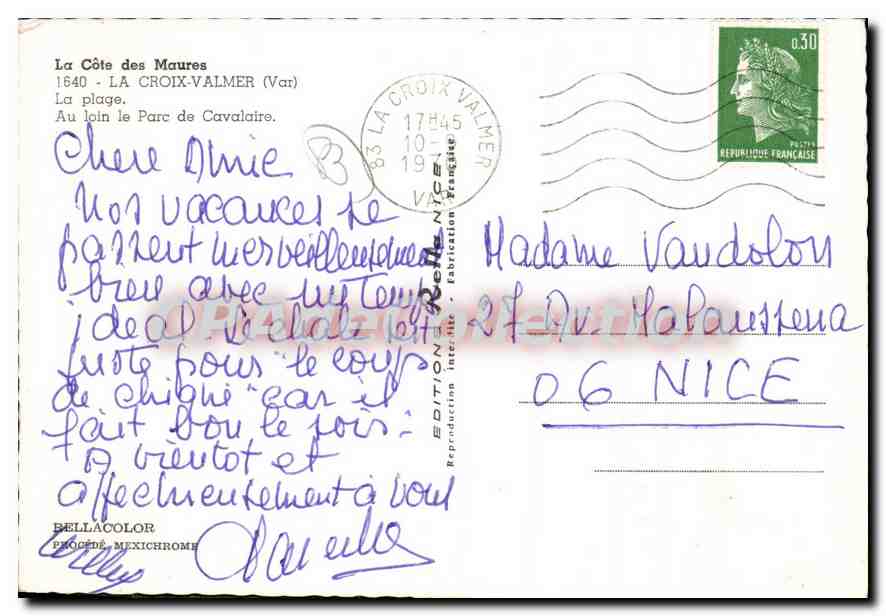 La Côte des Maures
1640 - LA CROIX-VALMER (Var)
La plage.
Au loin le Parc de Cavalaire.
Chere
Nos vacances se
passent merveilleusement
bien avec un temps
ideal. le chale est
juste pour "le coups
de chigne" car il
fait bon le soir.
A bientot et
affectueusement à vous
BELLACOLOR
PROCÉDÉ MEXICHROME
83 LA CROIX VALMER
17H45
10-
19
VAR
EDITIONS Rella NICE.
Reproduction interdite - Fabrication Française
0,30
POSTES
REPUBLIQUE FRANÇAISE
Madame Vandolon
27 Av. Malaussena
06 NICE